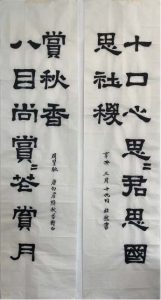 十口心思〻君思國
思社稷
八目尚賞〻花賞月
賞秋香